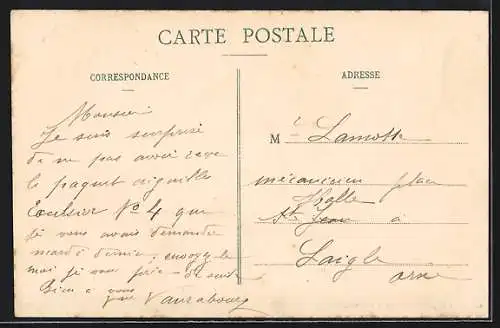 CARTE POSTALE
CORRESPONDANCE
ADRESSE
Monsieur
Je suis surprise
de ne pas avoir reçu
le paquet aiguilles
Couleur No 4 que
je vous avais demandé
mardi dernier envoyez le
moi je vous prie de suite
Bien à vous
M Lamotte
mécanicien place
Halle
St Jean à
Laigle
Orne